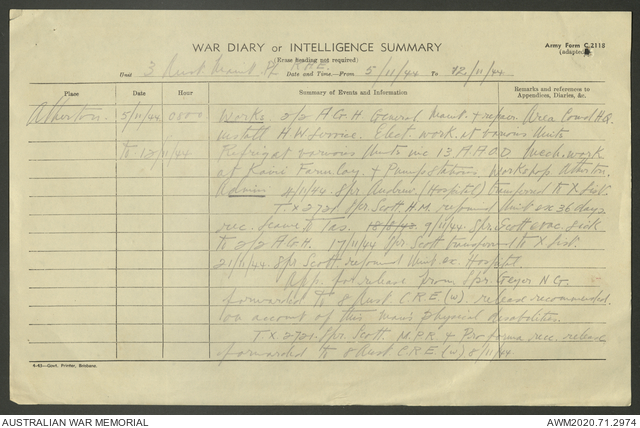 WAR DIARY or INTELLIGENCE SUMMARY
Army Form C.2118
(adapted)
(Erase heading not required)
Unit 3 Aust. Maint. Pl R.A.E. Date and Time—From 5/11/44 To 12/11/44
Place Date Hour Summary of Events and Information Remarks and references to Appendices, Diaries, &c.
Atherton. 5/11/44 0800 Works 2/2 A.G.H. General Maint. & repair. Area Comd H.Q.
install H.W. Service. Elect. work at various Units
to 12/11/44 Refrig at various Units inc 13 A.A.O.D. Mech. work
at Kairi Farm Coy. & Pump Stations, Workshop Atherton.
Admin 4/11/44 Spr Andrew (Hospital) transferred to X list.
TX 2721 Spr. Scott. H.M. rejoined Unit ex 36 days
rec. leave to Tas. 9/11/44 Spr. Scott evac. sick
to 2/2 A.G.H. 17/11/44 Spr. Scott transferred to X list.
21/11/44. Spr. Scott. rejoined Unit ex. Hospital.
App. for release from Spr. Geyer N G.
forwarded to 8 Aust. C.R.E. (w) release recommended.
on account of this man's physical disabilities.
TX. 2721. Spr. Scott. M.P.R. & Pro forma rec. release
forwarded to 8 Aust C.R.E. (w) 8/11/44.
4-43—Govt. Printer, Brisbane.
AUSTRALIAN WAR MEMORIAL
AWM2020.71.2974